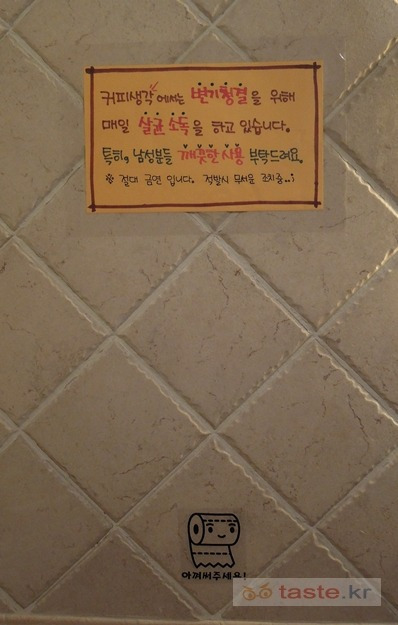 커피생각에서는 변기청결을 위해
매일 살균소독을 하고 있습니다.
특히, 남성분들 깨끗한 사용 부탁드려요.
※ 절대 금연 입니다. 적발시 무서운 조치중..;
아껴써주세요!
taste.kr